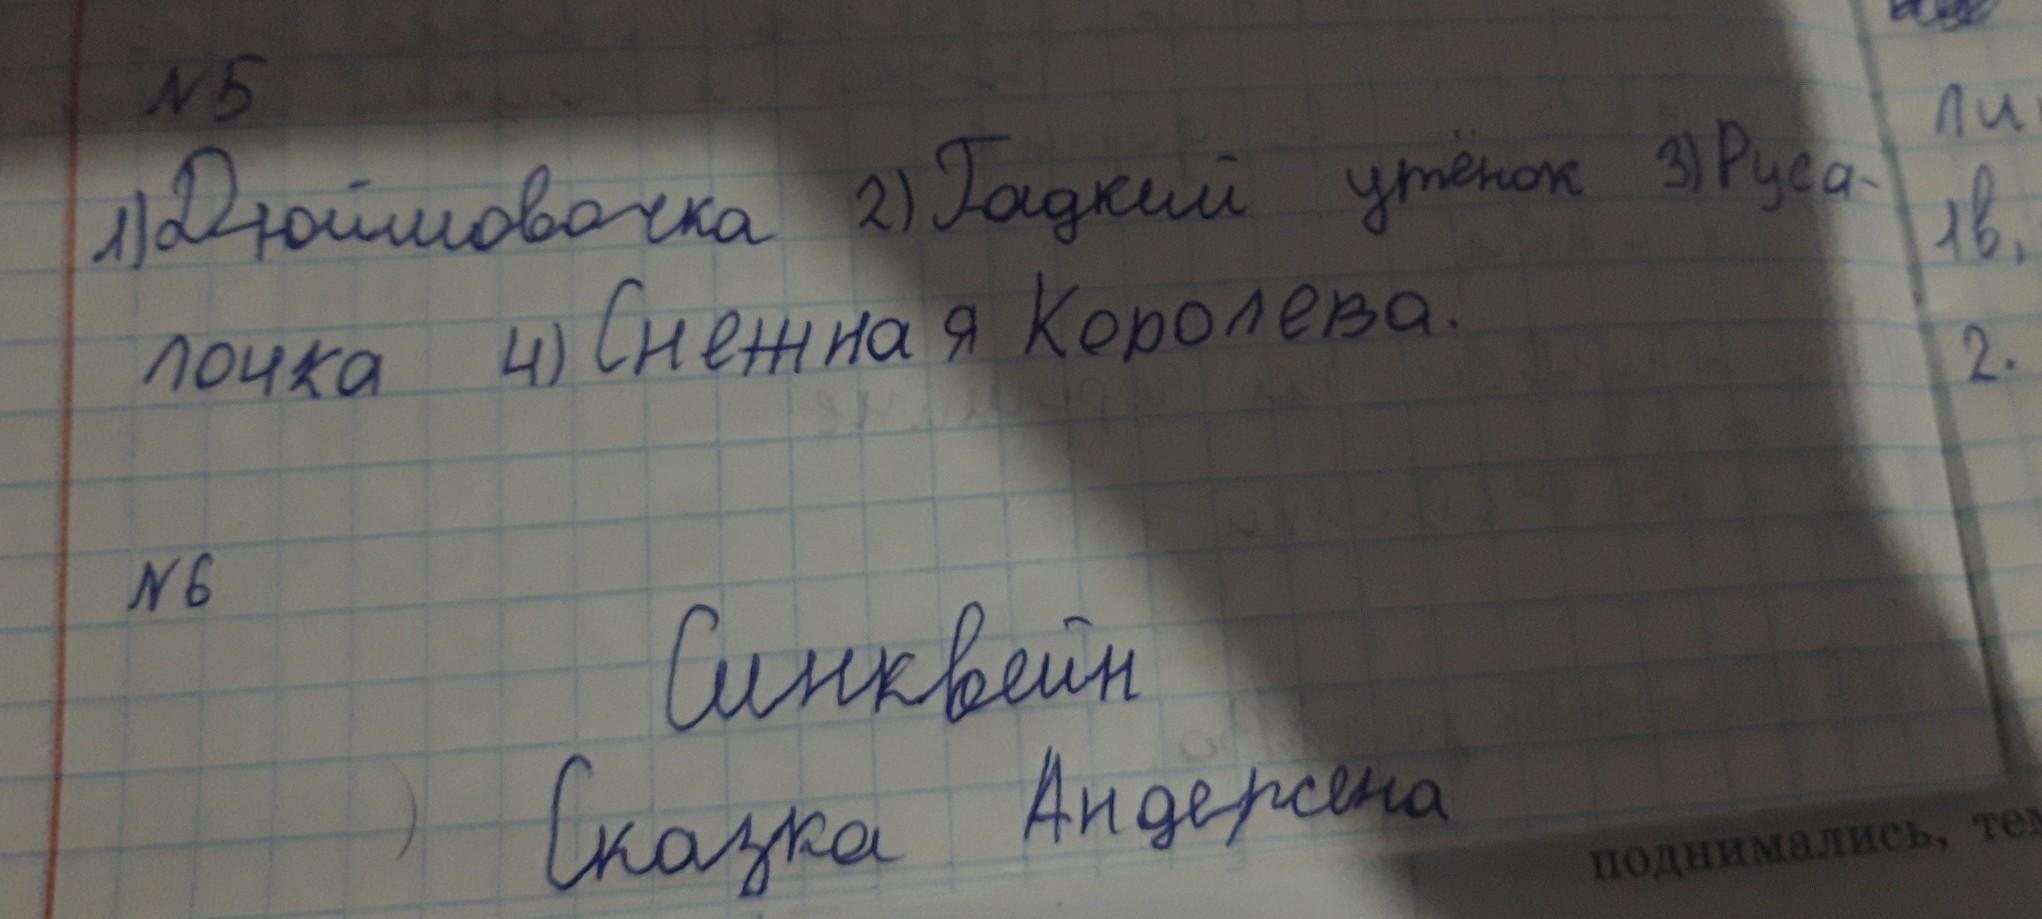 N5
1) Дюймовочка 2) Гадкий утёнок 3) Руса-
лочка 4) Снежная Королева.
N6
Синквейн
Сказка Андерсена
ли
1в,
2.
поднимались,